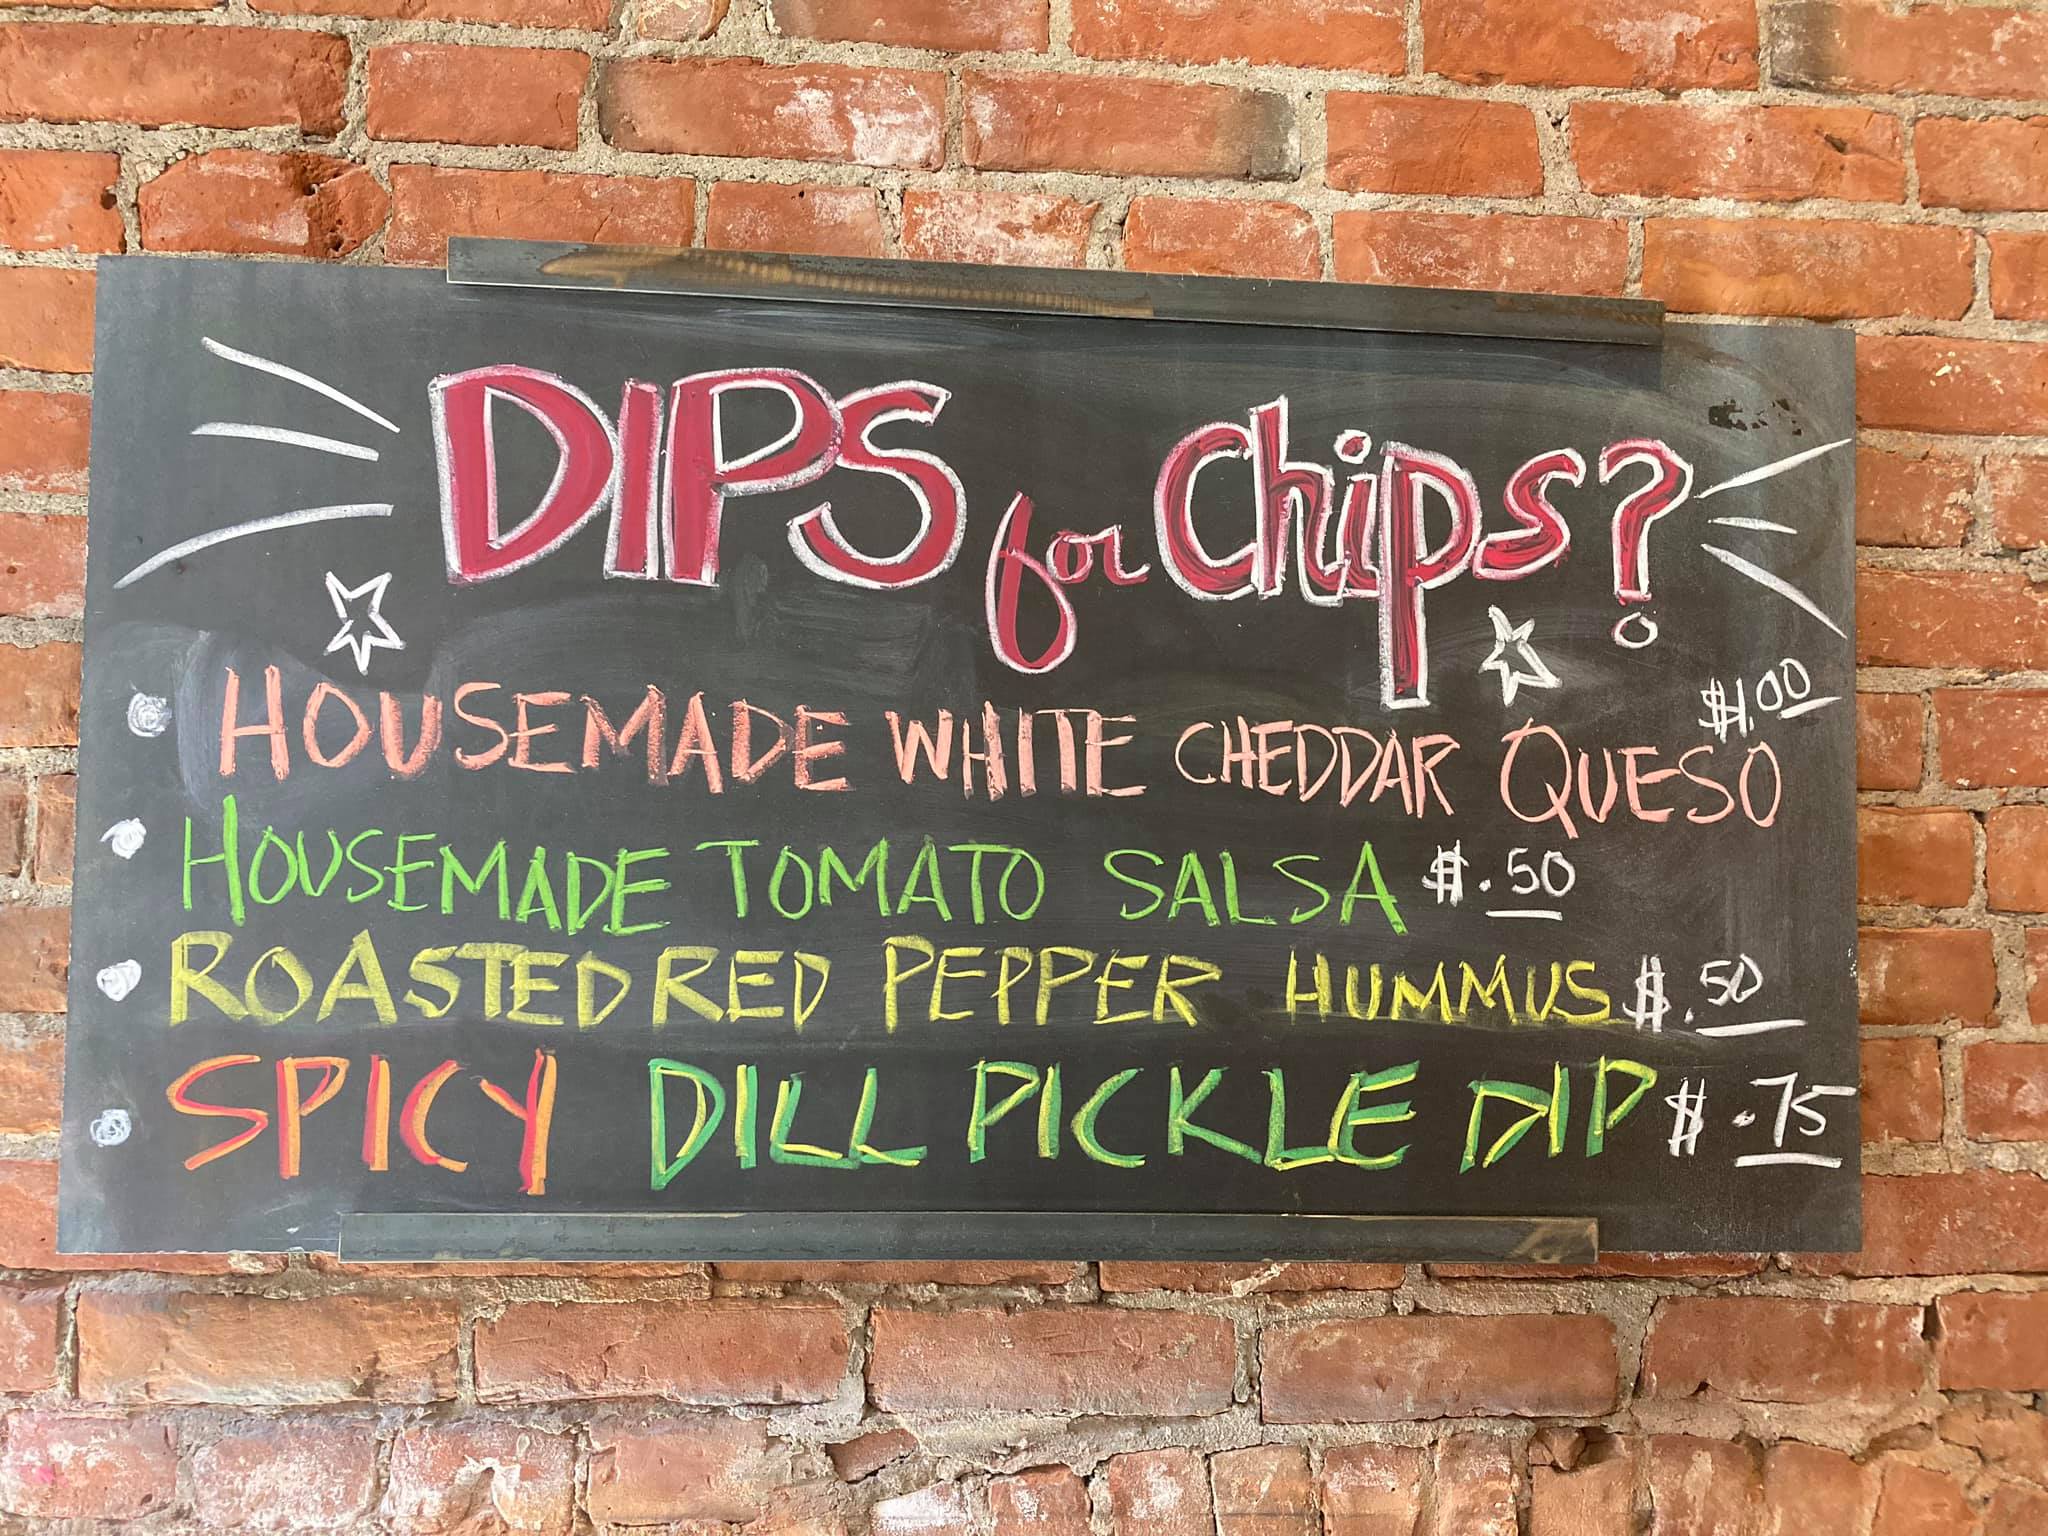 DIPS for Chips?
HOUSEMADE WHITE CHEDDAR QUESO $1.00
HOUSEMADE TOMATO SALSA $.50
ROASTED RED PEPPER HUMMUS $.50
SPICY DILL PICKLE DIP $.75